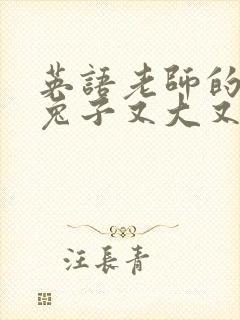 英語老師的
兔子又大又
汪長青